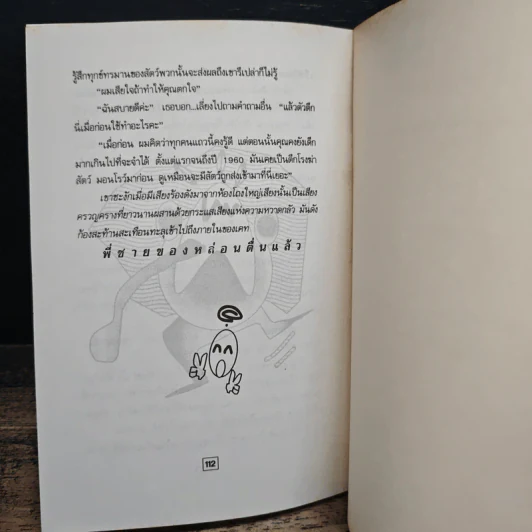 รู้สึกทุกข์ทรมานของสัตว์พวกนั้นจะส่งผลถึงเขารึเปล่าก็ไม่รู้
“ผมเสียใจถ้าทำให้คุณตกใจ”
“ฉันสบายดีค่ะ” เธอบอก...เลี่ยงไปถามคำถามอื่น “แล้วตัวตึก
นี่เมื่อก่อนใช้ทำอะไรคะ”
“เมื่อก่อน ผมคิดว่าทุกคนแถวนี้คงรู้ดี แต่ตอนนั้นคุณคงยังเด็ก
มากเกินไปที่จะจำได้ ตั้งแต่แรกจนถึงปี 1960 มันเคยเป็นตึกโรงฆ่า
สัตว์ มอนโรว์มาก่อน ดูเหมือนจะมีสัตว์ถูกส่งเข้ามาที่นี่เยอะ”
เขาชะงักเมื่อมีเสียงร้องดังมาจากห้องโถงใหญ่เสียงนั้นเป็นเสียง
ครวญครางที่ยาวนานผสานด้วยกระแสเสียงแห่งความหวาดกลัว มันดัง
ก้องสะท้านสะเทือนทะลุเข้าไปถึงภายในของเคท
พี่ชายของหล่อนตื่นแล้ว
112